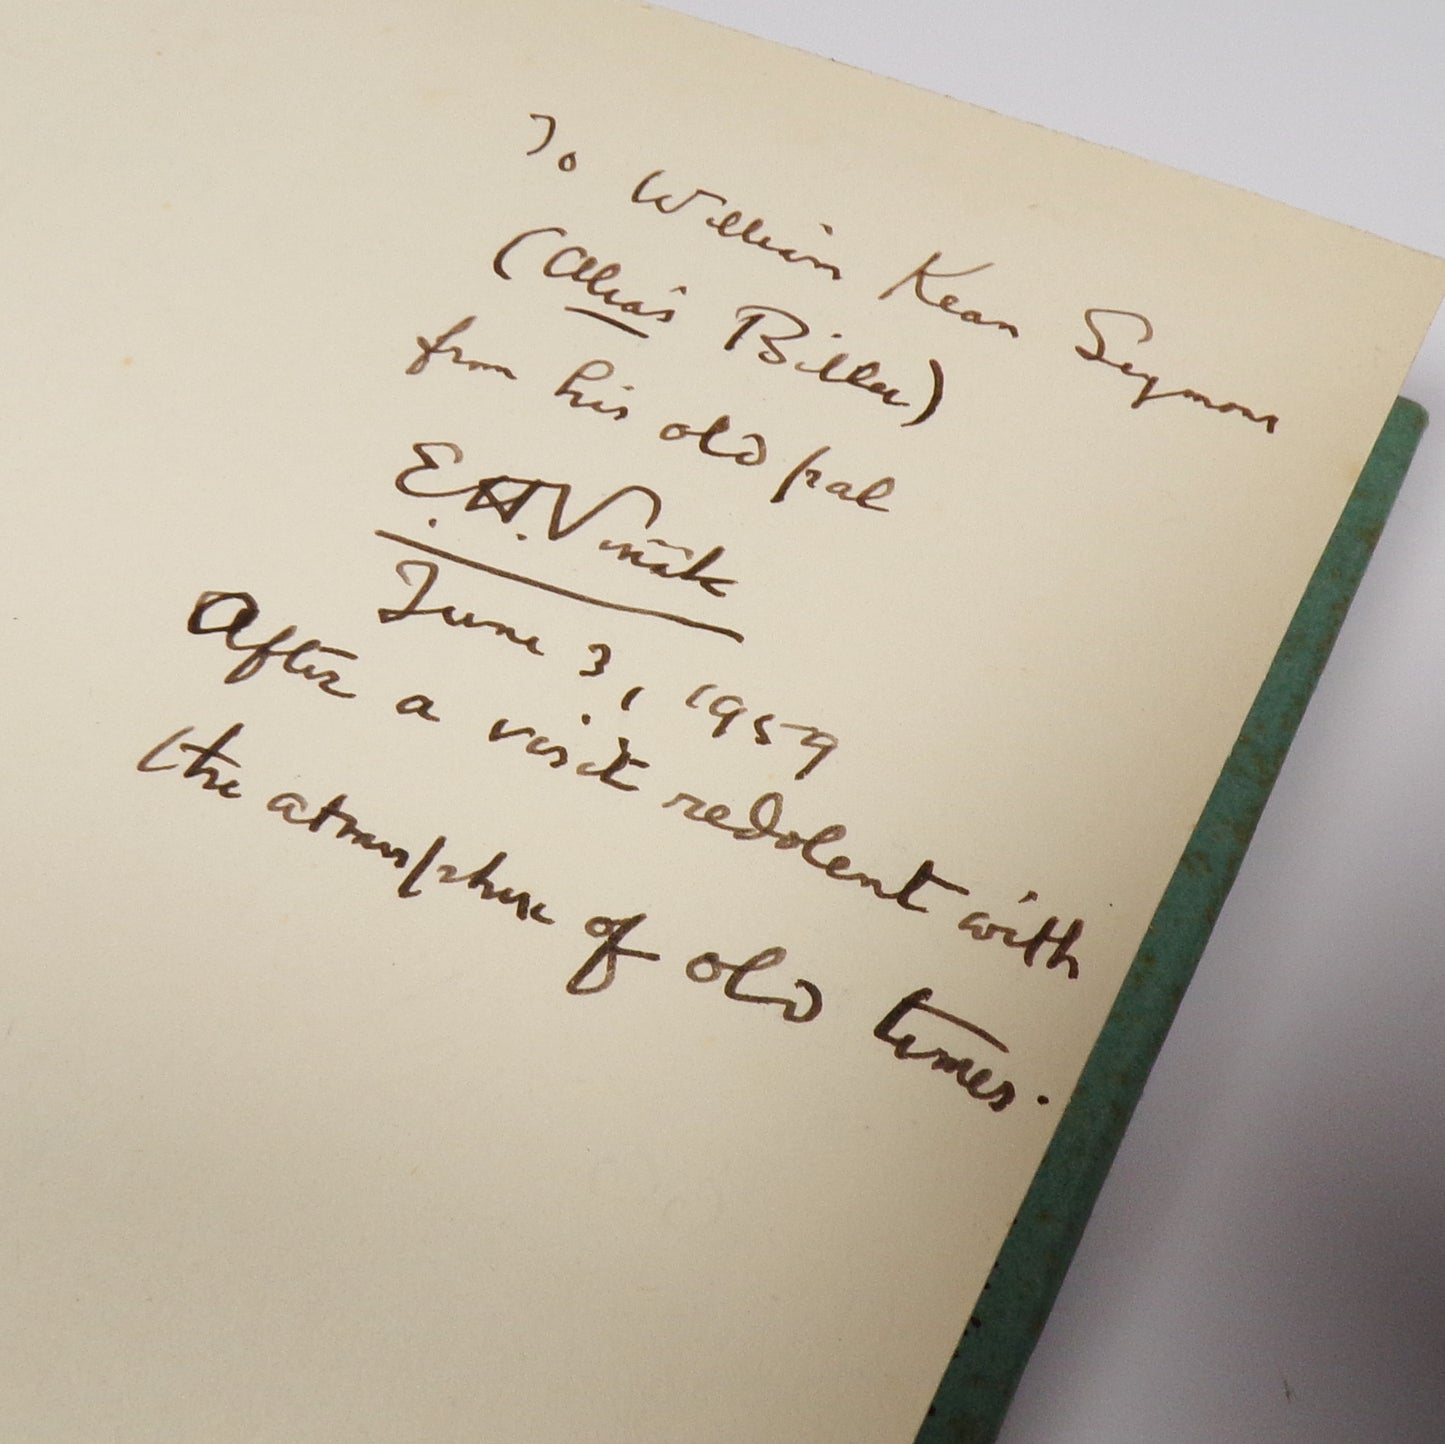 To William Kean Seymour
(Alias Billee)
from his old pal
E.H. Visiak
June 3, 1959
After a visit redolent with
the atmosphere of old times.